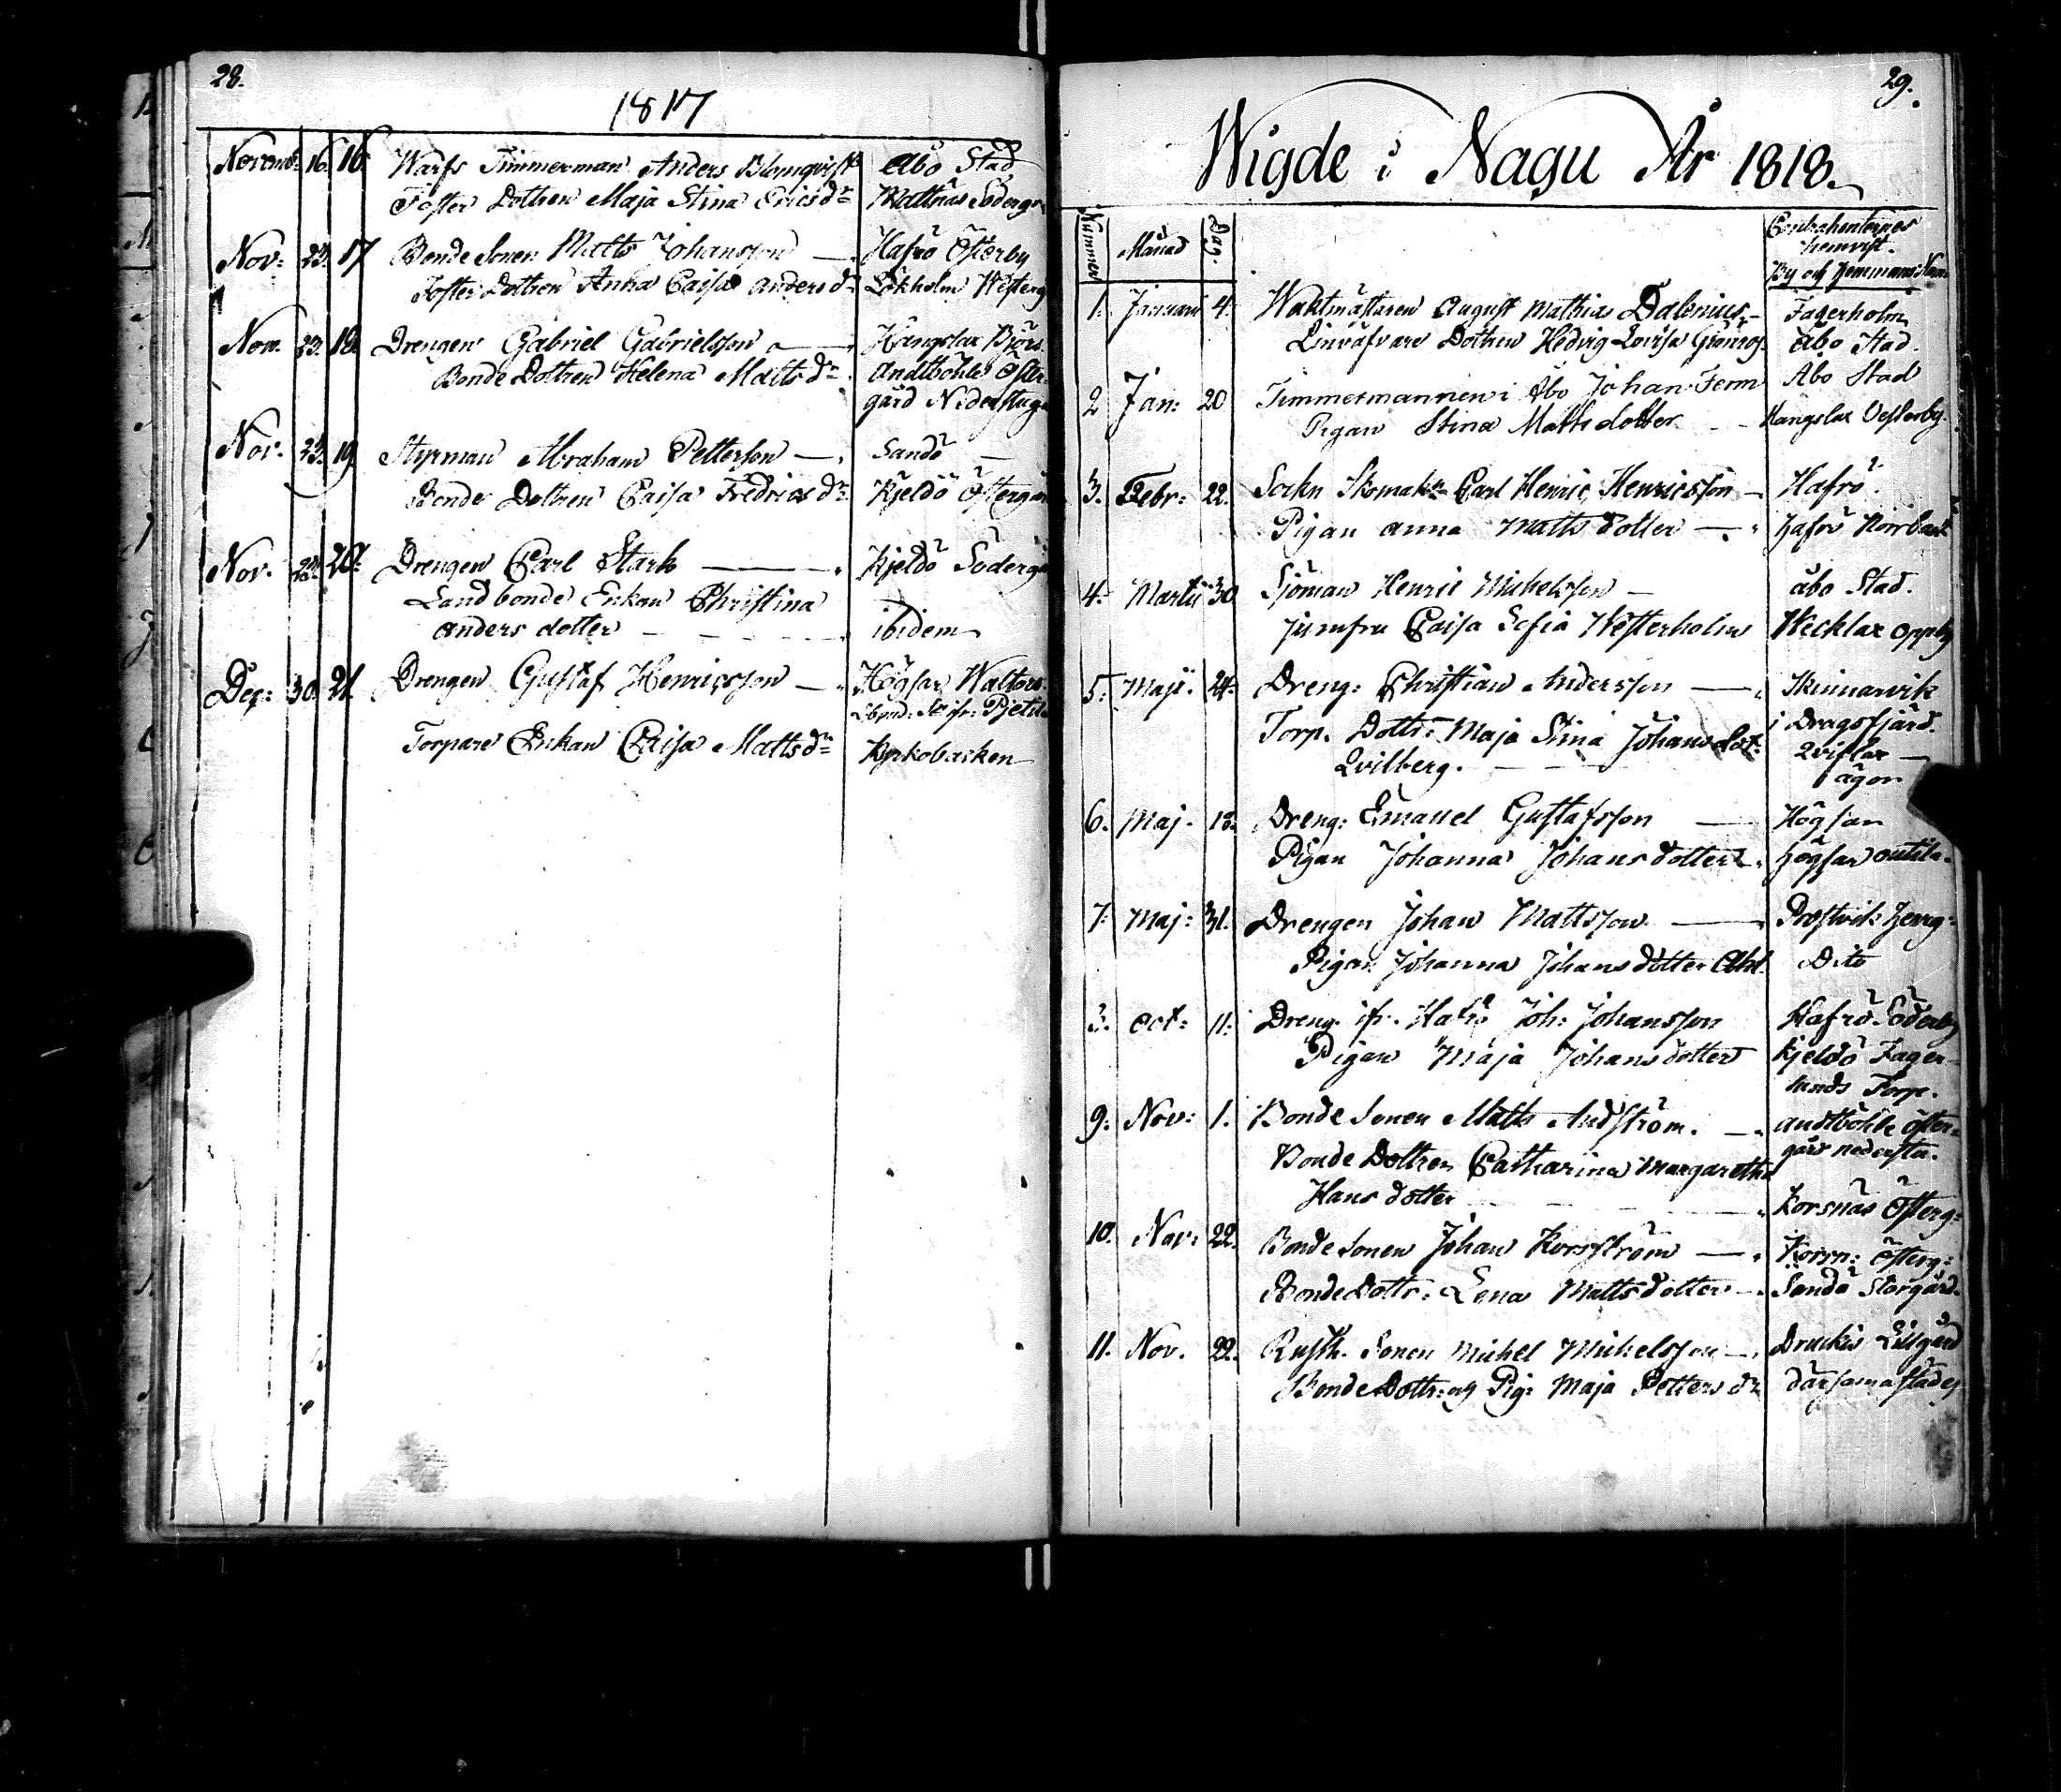 28.
1817
Novemb: 16. 16. Warfs Timmerman Anders Blomqvist Åbo Stad
Foster Dottren Maja Stina Ericsdr Mattnäs Söderg
Nov: 23. 17 Bonde Sonen Matts Johansson — Hafrö Österby
Foster Dottren Anna Caisa Andersdr Lökholm Westerg
Nov. 23. 18. Drengen Gabriel Gabrielsson — Kangslax Björs
Bonde Dottren Helena Mattsdr Andtböhle Öster
gård Nederstug
Nov. 23. 19. Styrman Abraham Pettersson — Sandö
Bonde Dottren Caisa Fredricsdr Kjeldö Östergår
Nov. 20. Drengen Carl Stark — Kjeldö Södergå
Landbonde Enkan Christina
Anders dotter — ibidem
Dec: 30. 21. Drengen Gustaf Henricsson — Högsar Waltors
Torpare Enkan Caisa Mattsdr Kyrkobacken
29.
Wigde i Nagu År 1818.
Nummer Månad Dag. Contrahenternes
hemvist.
By och Hemmans Namn
1. Januarii 4. Waktmästaren August Mathias Dalenius — Fagerholm
Linväfvare Dottren Hedvig Lovisa Grönros. Åbo Stad.
2 Jan: 20 Timmermannen i Åbo Johan Ferm Åbo Stad
Pigan Stina Matts dotter — Kangslax Vesterby.
3. Febr: 22. Sockn Skomakr Carl Henric Henricsson — Hafrö.
Pigan Anna Matts dotter — Hafrö Norrback
4. Martii 30 Sjöman Henric Michelsson — Åbo Stad.
Jumfru Caisa Sofia Westerholm Wecklax Oppby
5. Maji. 24. Dreng: Christian Andersson — Skinnarvik
i Dragsfjärd.
Torp. Dottr: Maja Stina Johans dot: Qviflax —
Qvilberg. — ägor
6. Maj. 18. Dreng: Emanuel Gustafsson — Högsar
Pigan Johanna Johans dotter Högsar Outila.
7. Maj: 31. Drengen Johan Mattsson — Prostvik Herrg:
Pigan Johanna Johans dotter Ahl. Dito
8. Oct: 11. Dreng. ifr. Hafrö Joh: Johansson Hafrö Söderby
Pigan Maja Johans dotter Kjeldö Fager-
lunds Torp.
9. Nov: 1. Bonde Sonen Matts Andström. — Andtböhle Öster-
gård nedersta.
Bonde Dottren Catharina Margaretha
Hans dotter — Korsnäs Österg:
10. Nov: 22. Bonde Sonen Johan Korsström — Korsn: Österg:
Bonde Dottr: Lena Matts dotter — Sandö Storgård.
11. Nov. 22. Rusth. Sonen Michel Michelsson — Druckis Lillgård
Bonde Dottr: och Pig: Maja Petters dr därsamastädes